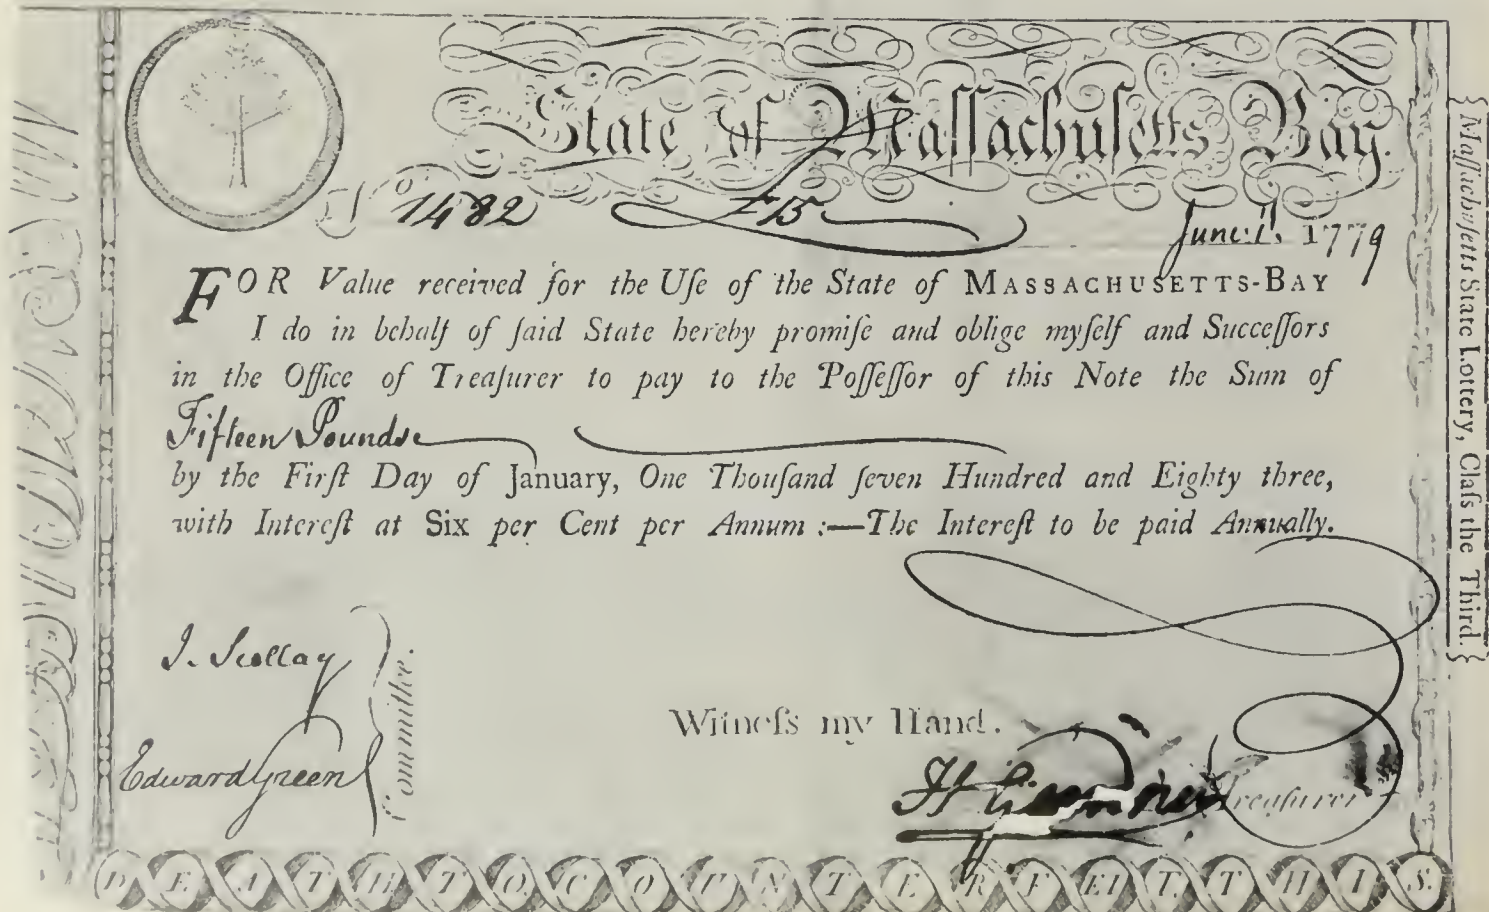 State of Maſſachuſetts Bay.
No. 1482 £15 June 1, 1779
FOR Value received for the Uſe of the State of MASSACHUSETTS-BAY
I do in behalf of ſaid State hereby promiſe and oblige myſelf and Succeſſors
in the Office of Treaſurer to pay to the Poſſeſſor of this Note the Sum of
Fifteen Pounds
by the Firſt Day of January, One Thouſand ſeven Hundred and Eighty three,
with Intereſt at Six per Cent per Annum :—The Intereſt to be paid Annually.
J. Scollay
Edward Green
Committee.
Witneſs my Hand.
H Gardner Treaſurer
DEATH TO COUNTERFEIT THIS.
{Maſſachuſetts State Lottery, Claſs the Third.}